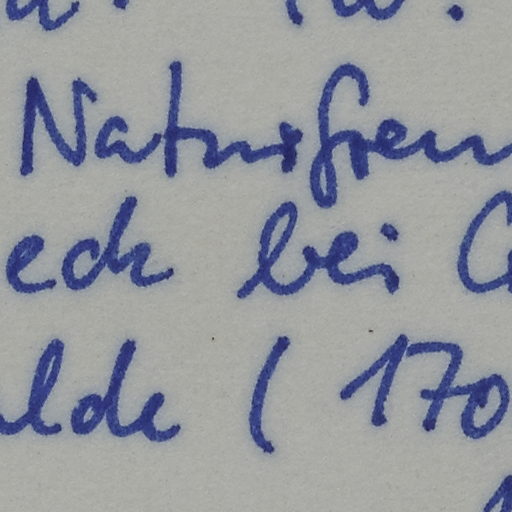 Naturfreun
eck bei C
alde (170